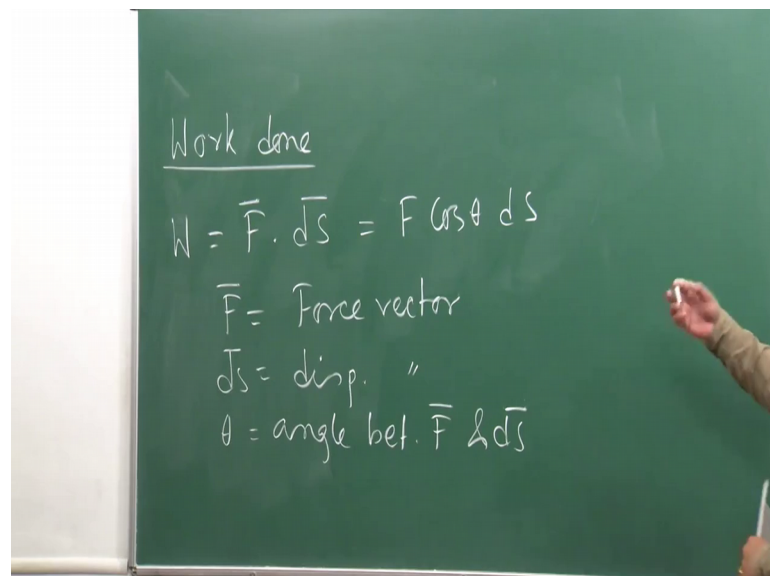 Work done
W = F̅ . d̅s̅ = F cosθ ds
F̅ = Force vector
d̅s̅ = disp. "
θ = angle bet. F̅ & d̅s̅